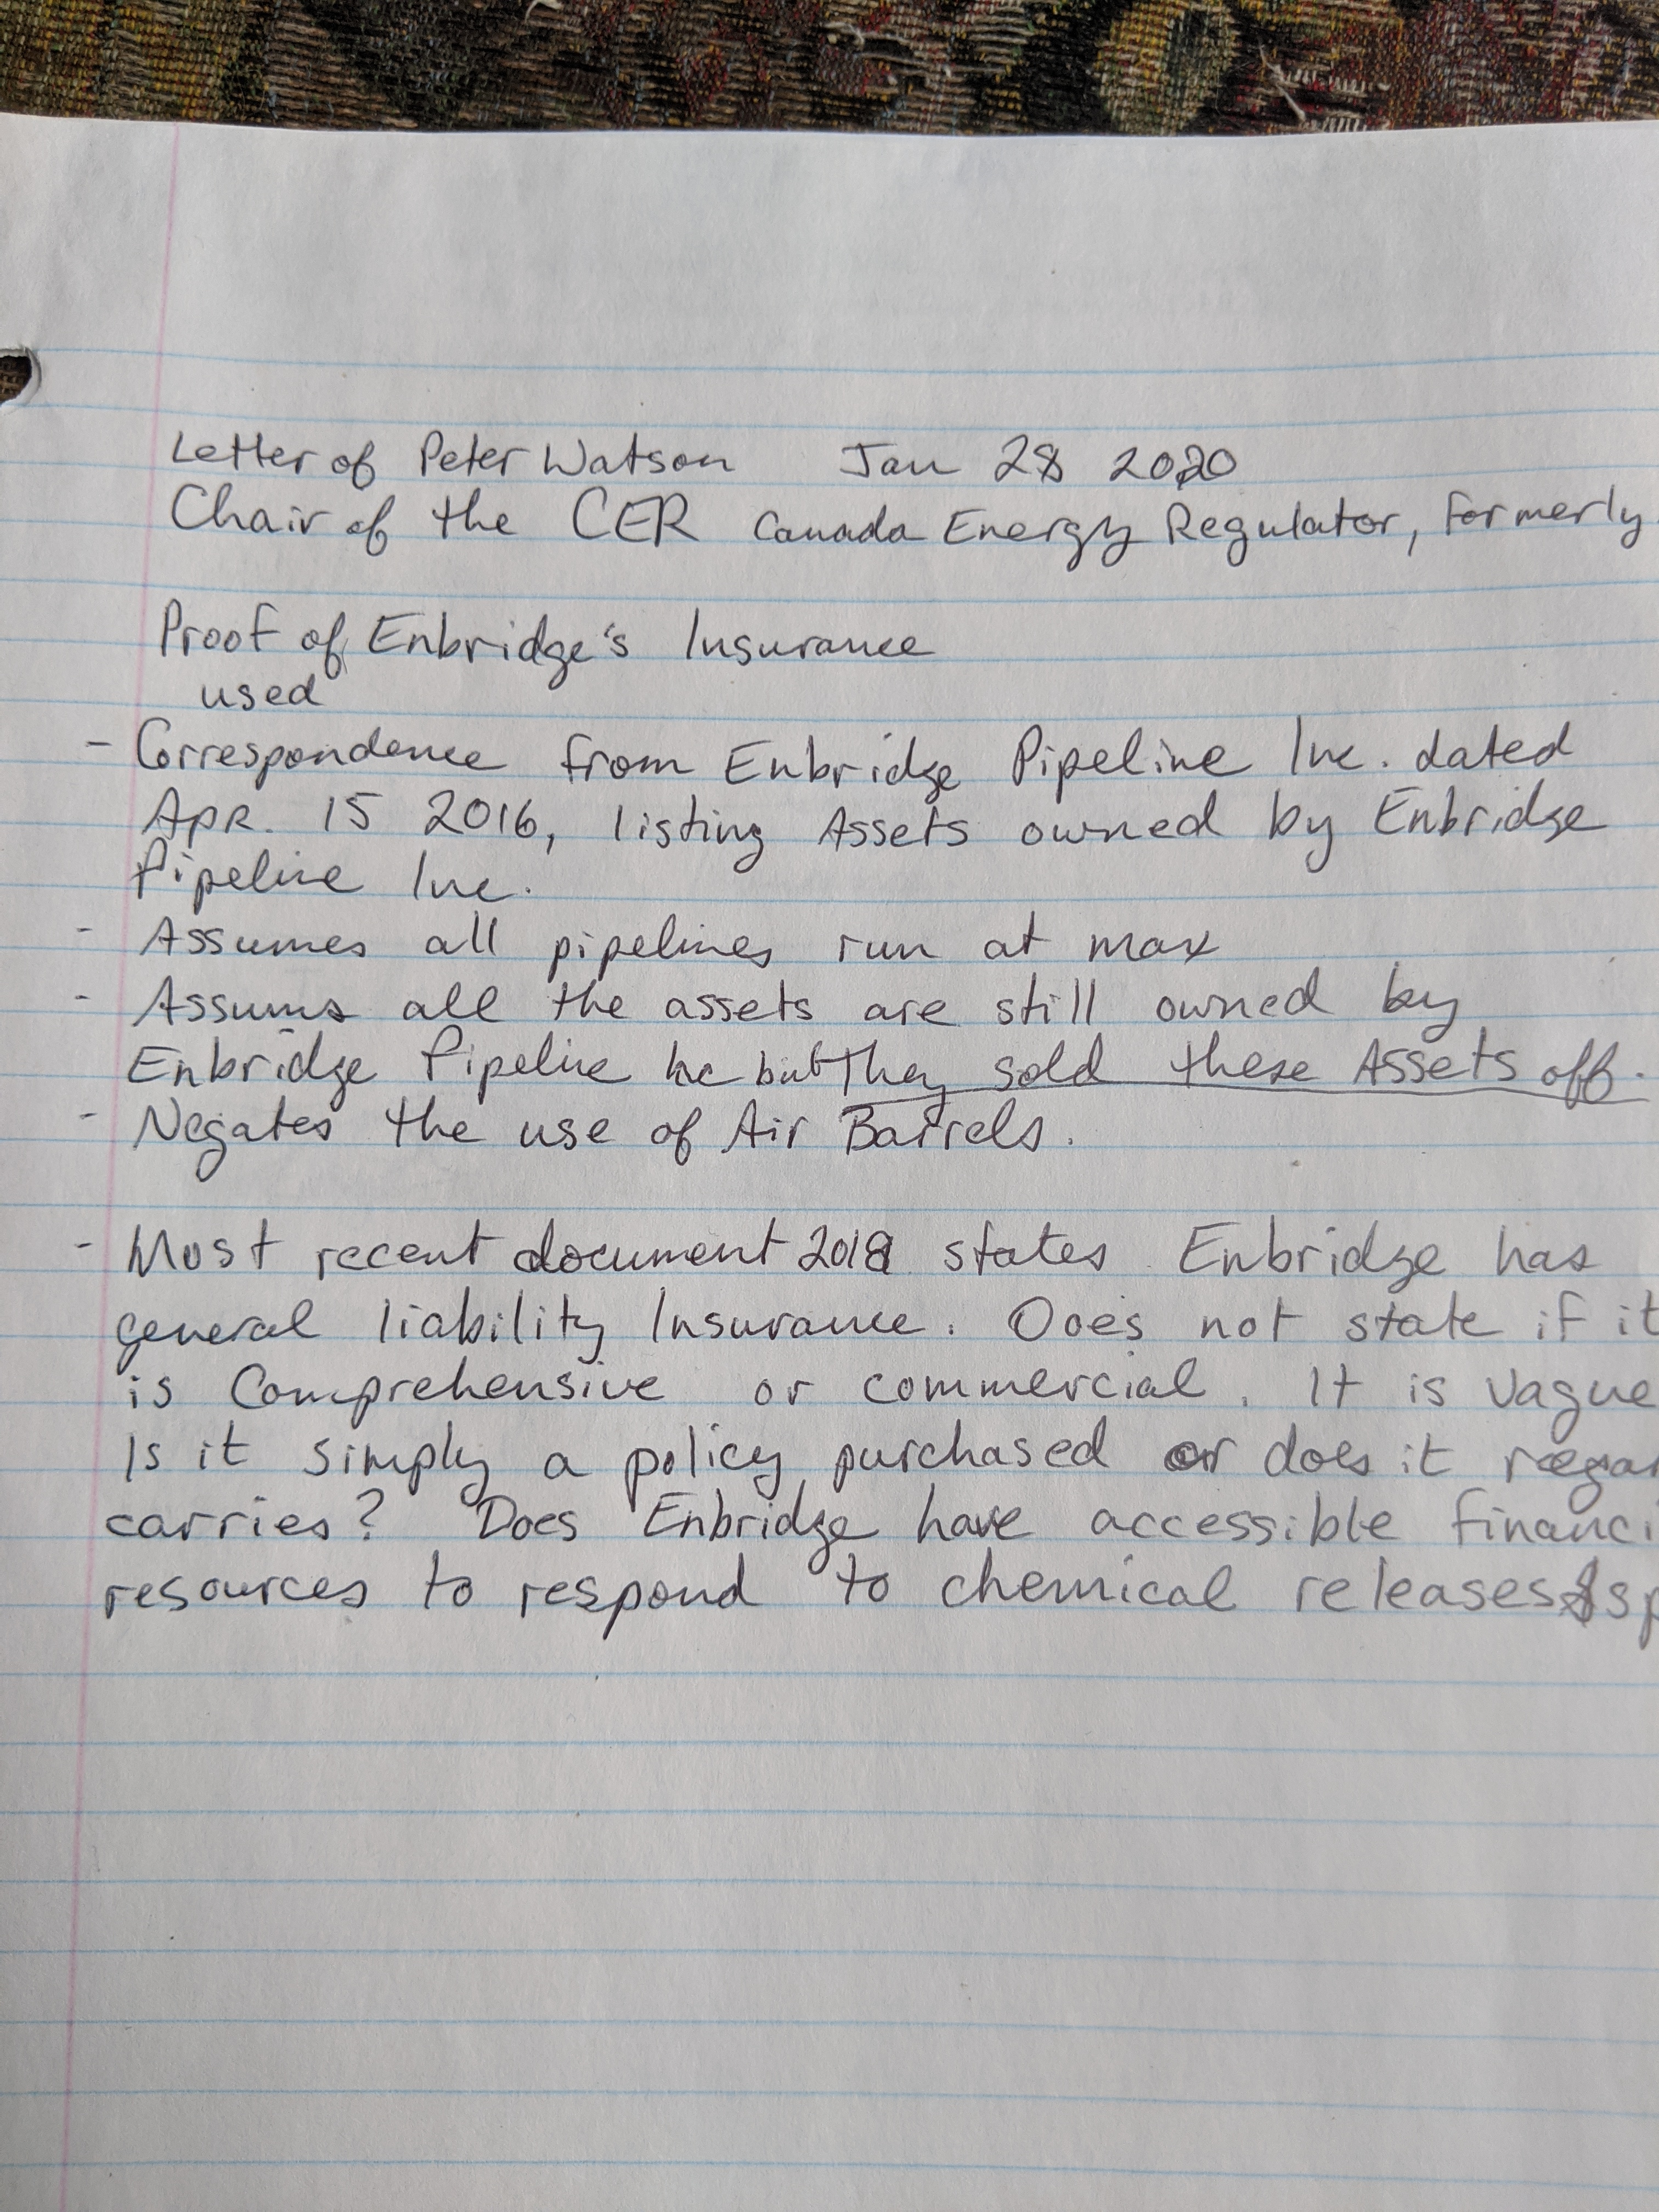 Letter of Peter Watson Jan 28 2020
Chair of the CER Canada Energy Regulator, formerly
Proof of Enbridge's Insurance
used
- Correspondence from Enbridge Pipeline Inc. dated
Apr. 15 2016, listing Assets owned by Enbridge
Pipeline Inc.
- Assumes all pipelines run at max
- Assums all the assets are still owned by
Enbridge Pipeline Inc but They sold these Assets off.
- Negates the use of Air Barrels.
- Most recent document 2018 states Enbridge has
general liability Insurance. Does not state if it
is Comprehensive or commercial. It is vague
Is it simply a policy purchased or does it
carries? Does Enbridge have accessible
resources to respond to chemical releases